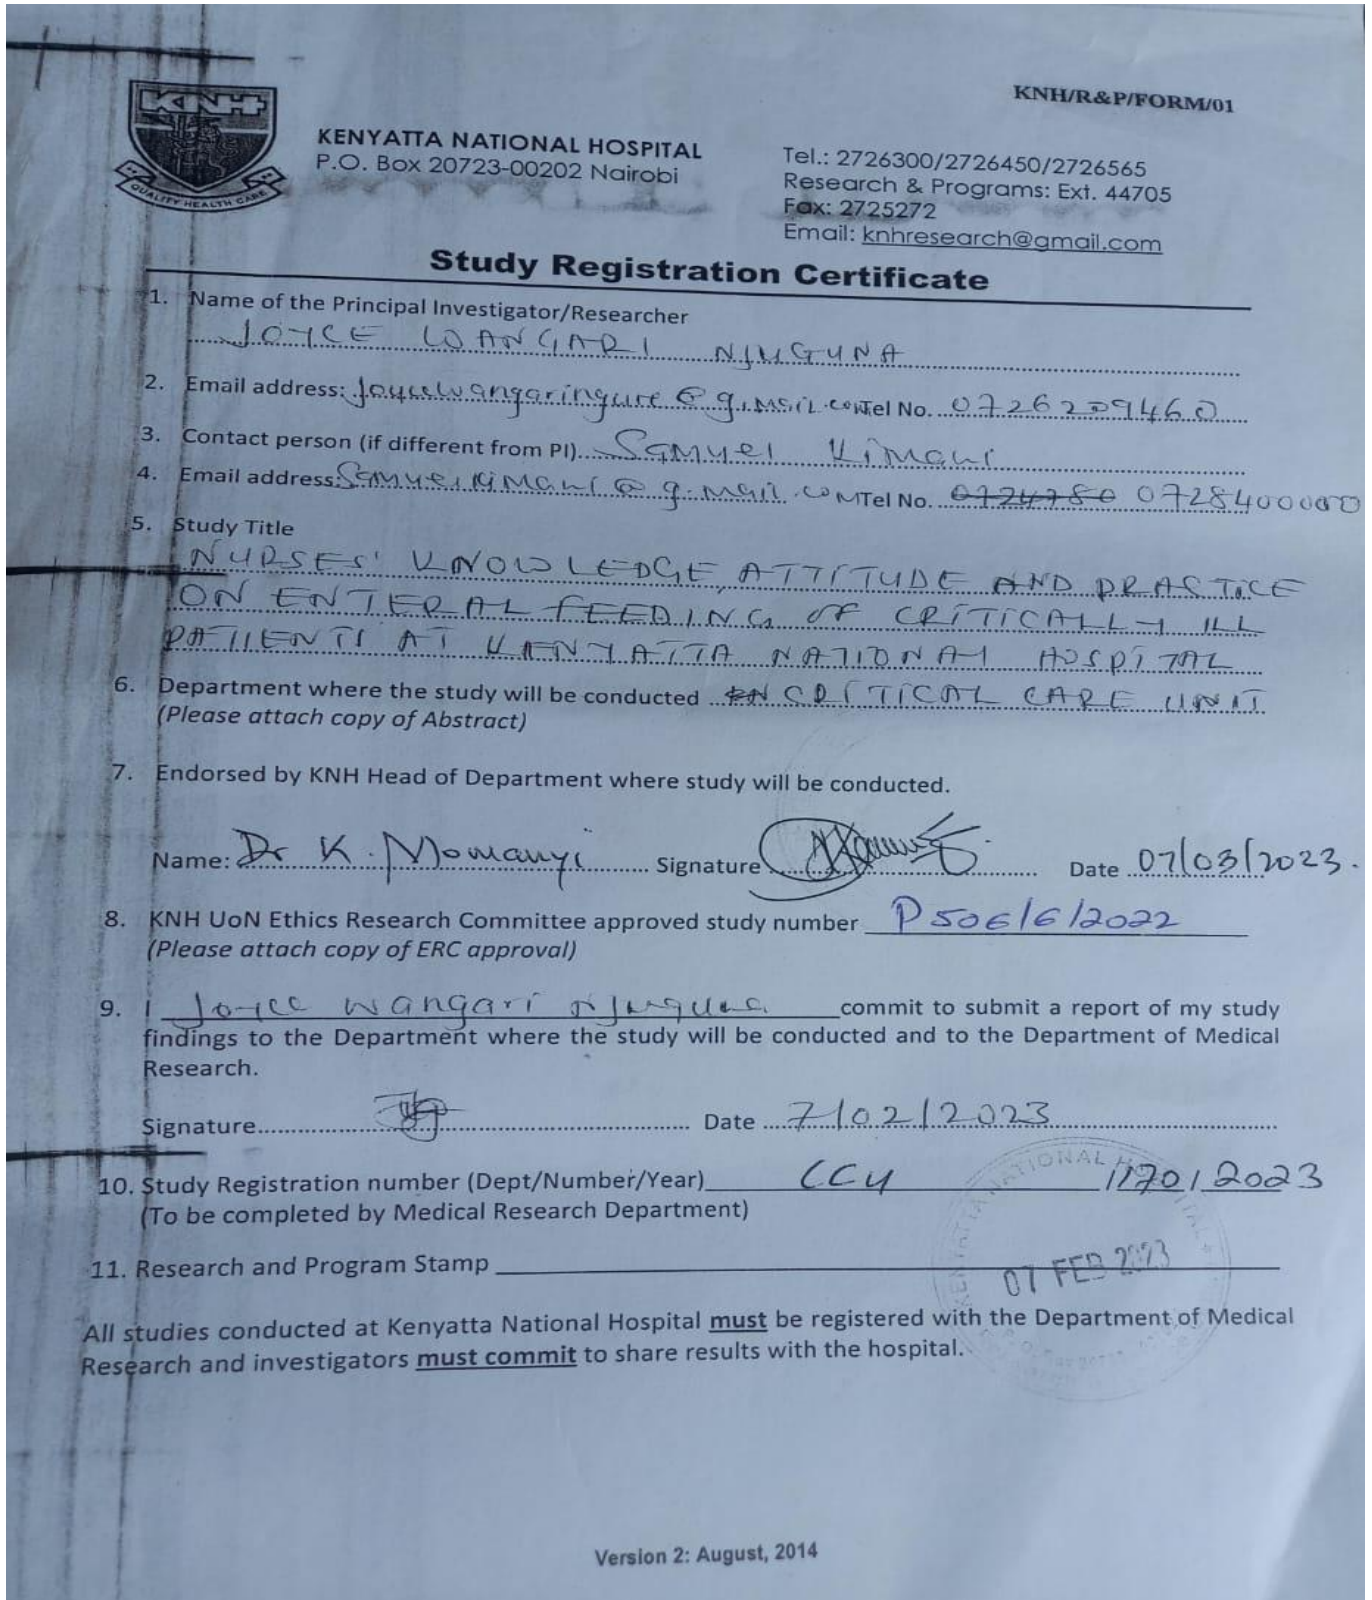 KNH/R&P/FORM/01
KNH
QUALITY HEALTH CARE
KENYATTA NATIONAL HOSPITAL
P.O. Box 20723-00202 Nairobi
Tel.: 2726300/2726450/2726565
Research & Programs: Ext. 44705
Fax: 2725272
Email: knhresearch@gmail.com
Study Registration Certificate
1. Name of the Principal Investigator/Researcher
JOYCE WANGARI NJUGUNA
2. Email address: Joycewangaringure@g.mail.com Tel No. 0726209460
3. Contact person (if different from PI) Samuel Kimani
4. Email address: Samuelkimani@g.mail.com Tel No. 0724780 0728400000
5. Study Title
NURSES' KNOWLEDGE, ATTITUDE AND PRACTICE
ON ENTERAL FEEDING OF CRITICALLY ILL
PATIENTS AT KENYATTA NATIONAL HOSPITAL
6. Department where the study will be conducted CRITICAL CARE UNIT
(Please attach copy of Abstract)
7. Endorsed by KNH Head of Department where study will be conducted.
Name: Dr K. Momanyi Signature Date 07/03/2023.
8. KNH UoN Ethics Research Committee approved study number P506/6/2022
(Please attach copy of ERC approval)
9. I Joyce Wangari Njuguna commit to submit a report of my study
findings to the Department where the study will be conducted and to the Department of Medical
Research.
Signature Date 7/02/2023
10. Study Registration number (Dept/Number/Year) CCU /170/2023
(To be completed by Medical Research Department)
11. Research and Program Stamp
KENYATTA NATIONAL HOSPITAL
07 FEB 2023
All studies conducted at Kenyatta National Hospital must be registered with the Department of Medical
Research and investigators must commit to share results with the hospital.
Version 2: August, 2014